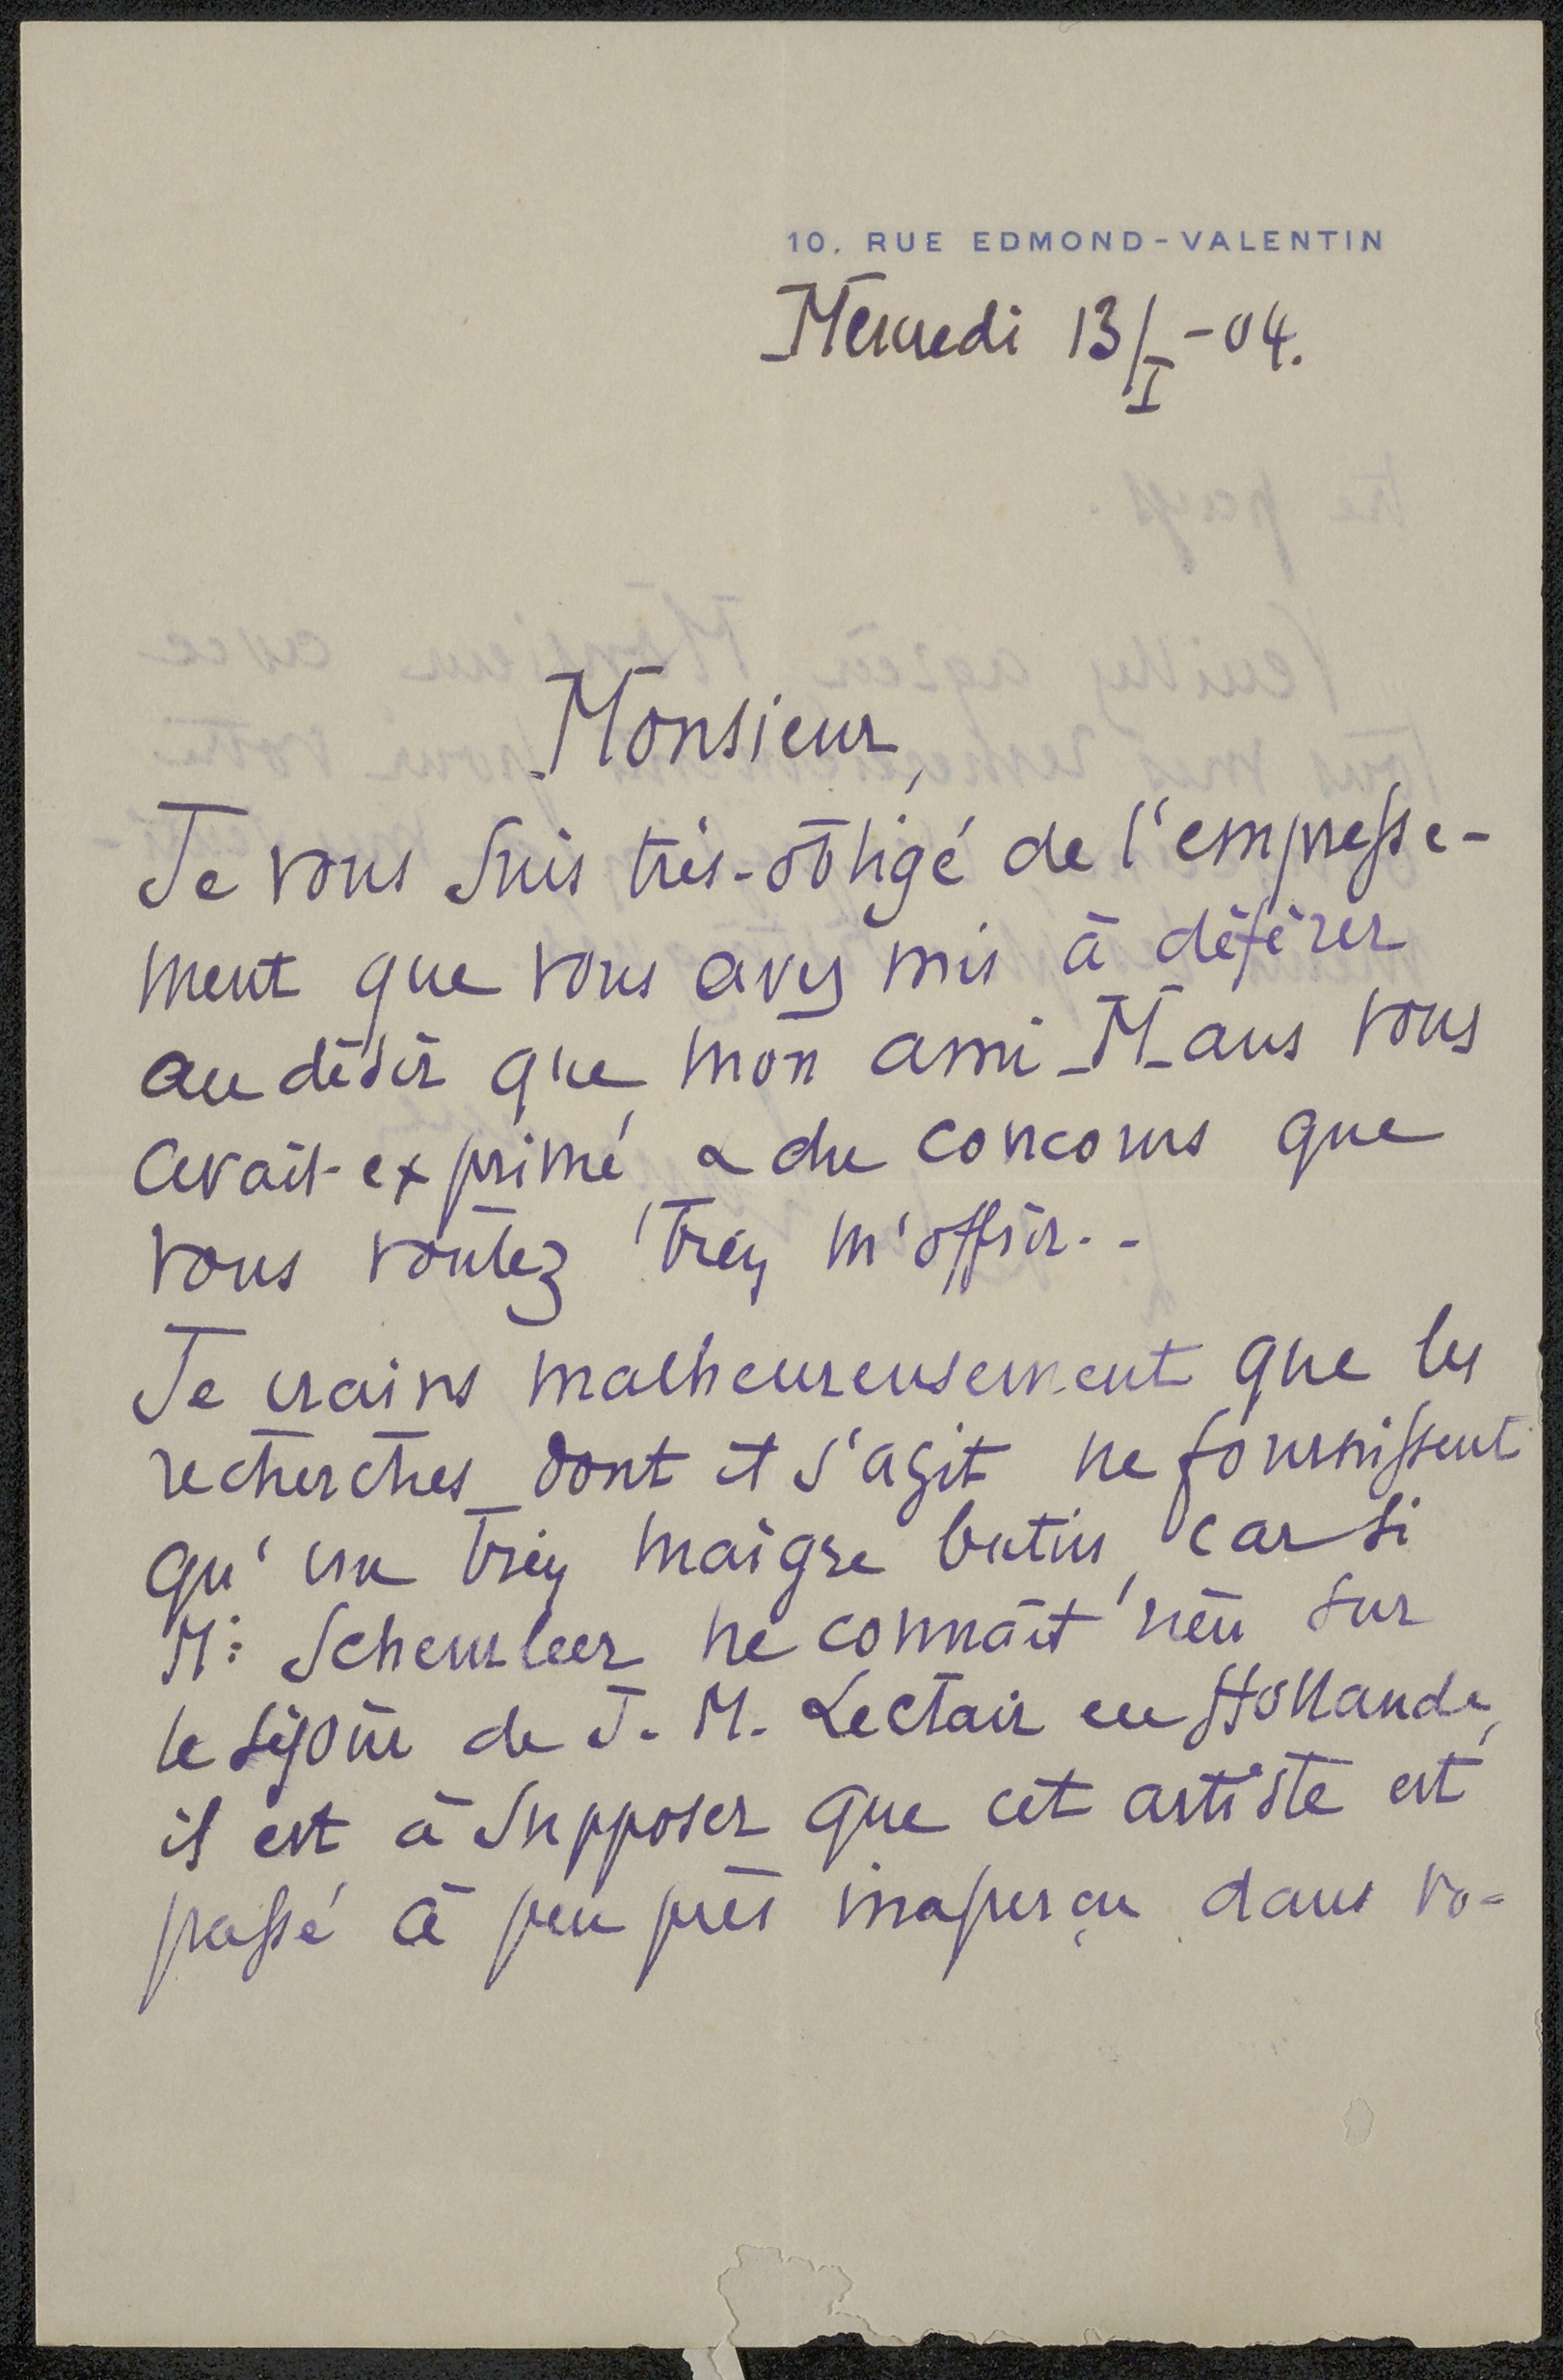 10. RUE EDMOND-VALENTIN
Mercredi 13/I-04.
Monsieur,
Je vous suis très-obligé de l'empresse-
ment que vous avez mis à déférer
au désir que mon ami Maus vous
avait exprimé, & du concours que
voulez bien m'offrir..
Je crains malheureusement que les
recherches dont il s'agit ne fournissent
qu'un bien maigre butin, car si
Mr Scheurleer ne connaît rien sur
le séjour de J. M. Leclair en Hollande,
il est à supposer que cet artiste est
passé à peu près inaperçu dans vo-